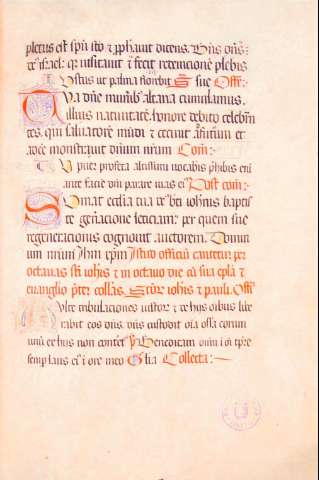 pletus est spũ sto & ꝓphauit dicens. Dñs dñs:
de⁹ israel: qꝛ uisitauit & fecit redemcionẽ plebis
Iustus ut palma florebit S sue Off:-
Tua dñe munib⁹ altaria cumulamus.
illius natiuitatẽ. honore debito celebrãtes. qui saluatorẽ mũdi & cecinit affuturũ et
adee monstrauit dñum nrũm Com:-
Tu puer profeta altissimi uocabis p̃hibis eni
ante faciẽ dñi parare uias ei⁹ Post com:-
Sumat ecclia tua de⁹ bti ioħnis baptis
te gen̾acione leticiam: per quem sue
regeneracionis cognouit auctorem. Dominum
um nrũm Jhm xp̃m Istud officiũ cantetur per
octauas sti ioħis & in octauo die cũ sua epła &
euanglio p̾ter collãs. Stõr ioħis & pauli. Off
Multe tribulaciones iustor & de hijs oĩbus libe
rabit eos dñs. dñs custodit oĩa ossa eorum
unũ ex hus non conte℞ ℣ Benedicam dñm ĩ oĩ tp̃re
semp laus ei⁹ ĩ ore meo Glia Collecta:-